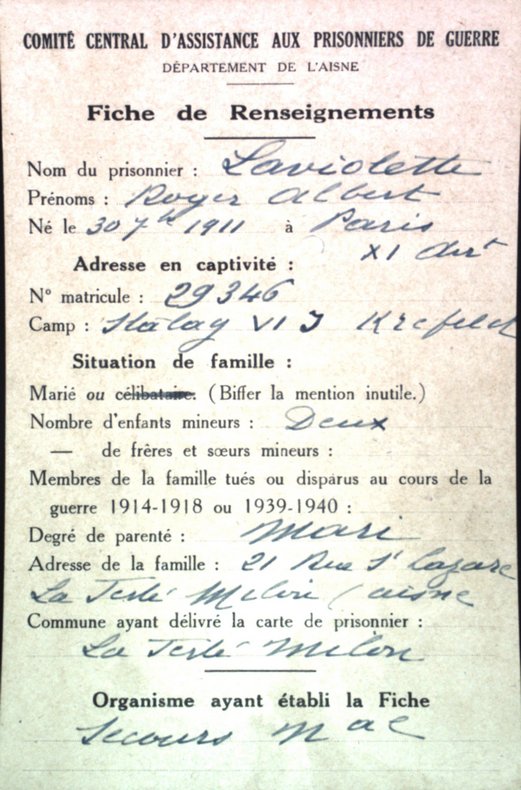 COMITÉ CENTRAL D'ASSISTANCE AUX PRISONNIERS DE GUERRE
DÉPARTEMENT DE L'AISNE
Fiche de Renseignements
Nom du prisonnier : Laviolette
Prénoms : Roger Albert
Né le 30 7bre 1911 à Paris
XI arrt
Adresse en captivité :
N° matricule : 29346
Camp : Stalag VI J Krefeld
Situation de famille :
Marié ou célibataire. (Biffer la mention inutile.)
Nombre d'enfants mineurs : Deux
— de frères et sœurs mineurs :
Membres de la famille tués ou disparus au cours de la
guerre 1914-1918 ou 1939-1940 :
Degré de parenté : Mari
Adresse de la famille : 21 Rue St Lazare
La Ferté Milon (aisne
Commune ayant délivré la carte de prisonnier :
La Ferté Milon
Organisme ayant établi la Fiche
Secours Nal